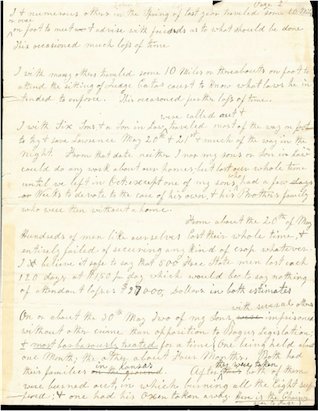 (Page 2
I & numerous others in the Spring of last year traveled some 10 Miles
on foot to meet & advise with friends as to what should be done
This occasioned much loss of time
I with many others traveled some 10 Miles or thereabouts on foot to
attend the sitting of Judge Catos court to know what laws he in-
tended to enforce. This occasioned further loss of time.
were called out &
I with Six Sons & a Son in Law traveled most of the way on foot
to try & save Lawrence May 20th & 21st & much of the way in the
night. From that date neither I nor my sons or son in law
could do any work about our homes; but lost our whole time
until we left in Oct; except one of my sons who had a few days
or weeks to devote to the care of his own, & his Brothers family
who were then without a home.
From about the 20th of May
Hundreds of men like ourselves lost their whole time, &
entirely failed of securing any kind of crop whatever.
I believe it safe to say that 500 Free State men lost each
120 days at $1.50 per day which would be to say nothing
of attendant losses $ 90,000, Dollars in both estimates
with several others
On or about the 30th May Two of my Sons, imprisoned
without other crime than opposition to Bogus Legislation
& most barbarously treated for a time; One being held about
one Month; the other about Four Months. Both had
their families in Kansas After they were taken
were burned out; in which burning all the eight suf-
fered; & one had his Oxen taken away